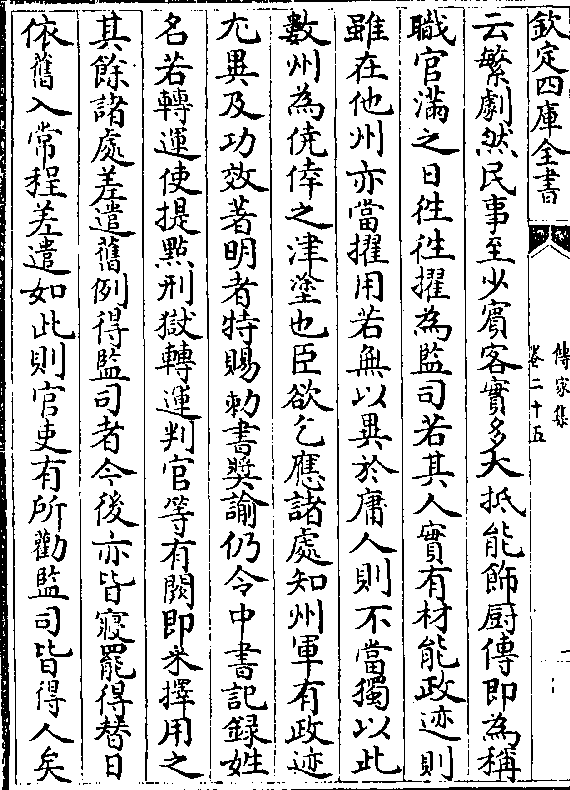 欽定四庫全書
傳家集
卷二十五
云繁劇然民事至少賓客實多大抵能飾厨傳即為稱
職官滿之日徃徃擢為監司若其人實有材能政迹則
雖在他州亦當擢用若無以異於庸人則不當獨以此
數州為僥倖之津塗也臣欲乞應諸處知州軍有政迹
尤異及功效著明者特賜勅書奬諭仍令中書記録姓
名若轉運使提點刑獄轉運判官等有闕即来擇用之
其餘諸處差遣舊例得監司者今後亦皆寢罷得替日
依舊入常程差遣如此則官吏有所勸監司皆得人矣